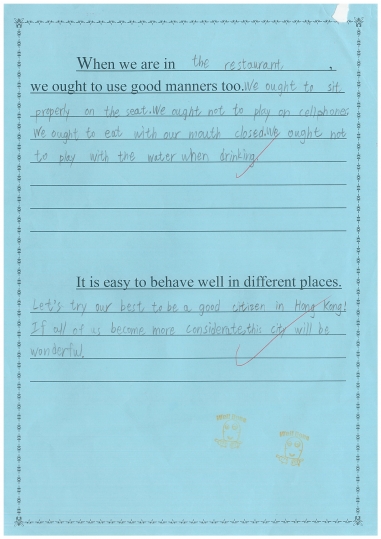 When we are in the restaurant,
we ought to use good manners too. We ought to sit
properly on the seat. We ought not to play on cellphones.
We ought to eat with our mouth closed. We ought not
to play with the water when drinking.
It is easy to behave well in different places.
Let's try our best to be a good citizen in Hong Kong!
If all of us become more considerate, this city will be
wonderful.